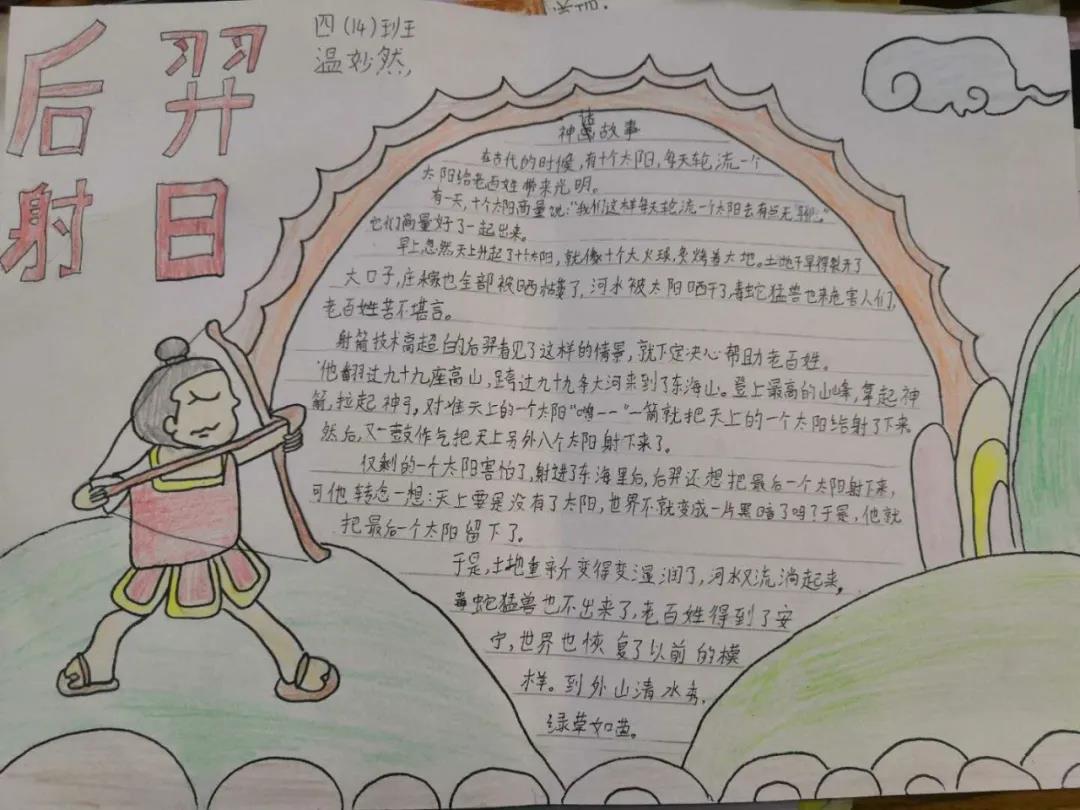 后羿
射日
四(14)班
温妙然
神话故事
在古代的时候,有十个太阳,每天轮流一个
太阳给老百姓带来光明。
有一天,十个太阳商量说:“我们这样每天轮流一个太阳去有点无聊。”
它们商量好了一起出来。
早上忽然天上升起了十个太阳,就像十个大火球,炙烤着大地。土地干旱得裂开了
大口子,庄稼也全部被晒枯萎了,河水被太阳晒干了,毒蛇猛兽也来危害人们,
老百姓苦不堪言。
射箭技术高超的后羿看见了这样的情景,就下定决心帮助老百姓。
他翻过九十九座高山,跨过九十九条大河来到了东海山。登上最高的山峰,拿起神
箭,拉起神弓,对准天上的一个太阳“嗖——”一箭就把天上的一个太阳给射了下来。
然后,又一鼓作气把天上另外八个太阳射下来了。
仅剩的一个太阳害怕了,射进了东海里后,后羿还想把最后一个太阳射下来,
可他转念一想:天上要是没有了太阳,世界不就变成一片黑暗了吗?于是,他就
把最后一个太阳留下了。
于是,土地重新变得变湿润了,河水又流淌起来,
毒蛇猛兽也不出来了,老百姓得到了安
宁,世界也恢复了以前的模
样。到外山清水秀,
绿草如茵。